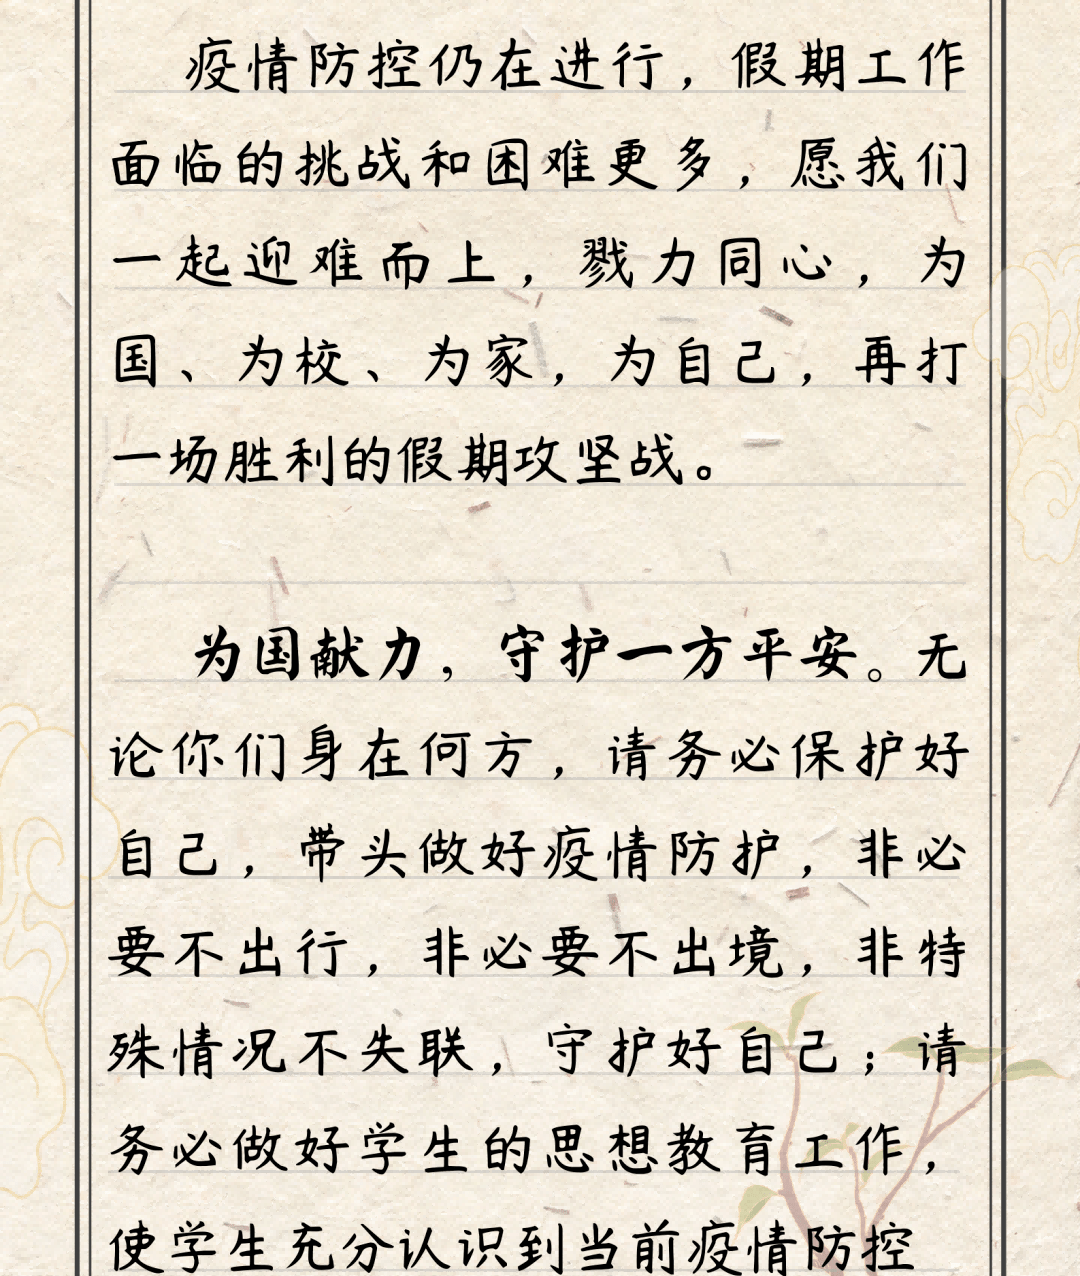 疫情防控仍在进行，假期工作
面临的挑战和困难更多，愿我们
一起迎难而上，戮力同心，为
国、为校、为家，为自己，再打
一场胜利的假期攻坚战。
为国献力，守护一方平安。无
论你们身在何方，请务必保护好
自己，带头做好疫情防护，非必
要不出行，非必要不出境，非特
殊情况不失联，守护好自己；请
务必做好学生的思想教育工作，
使学生充分认识到当前疫情防控